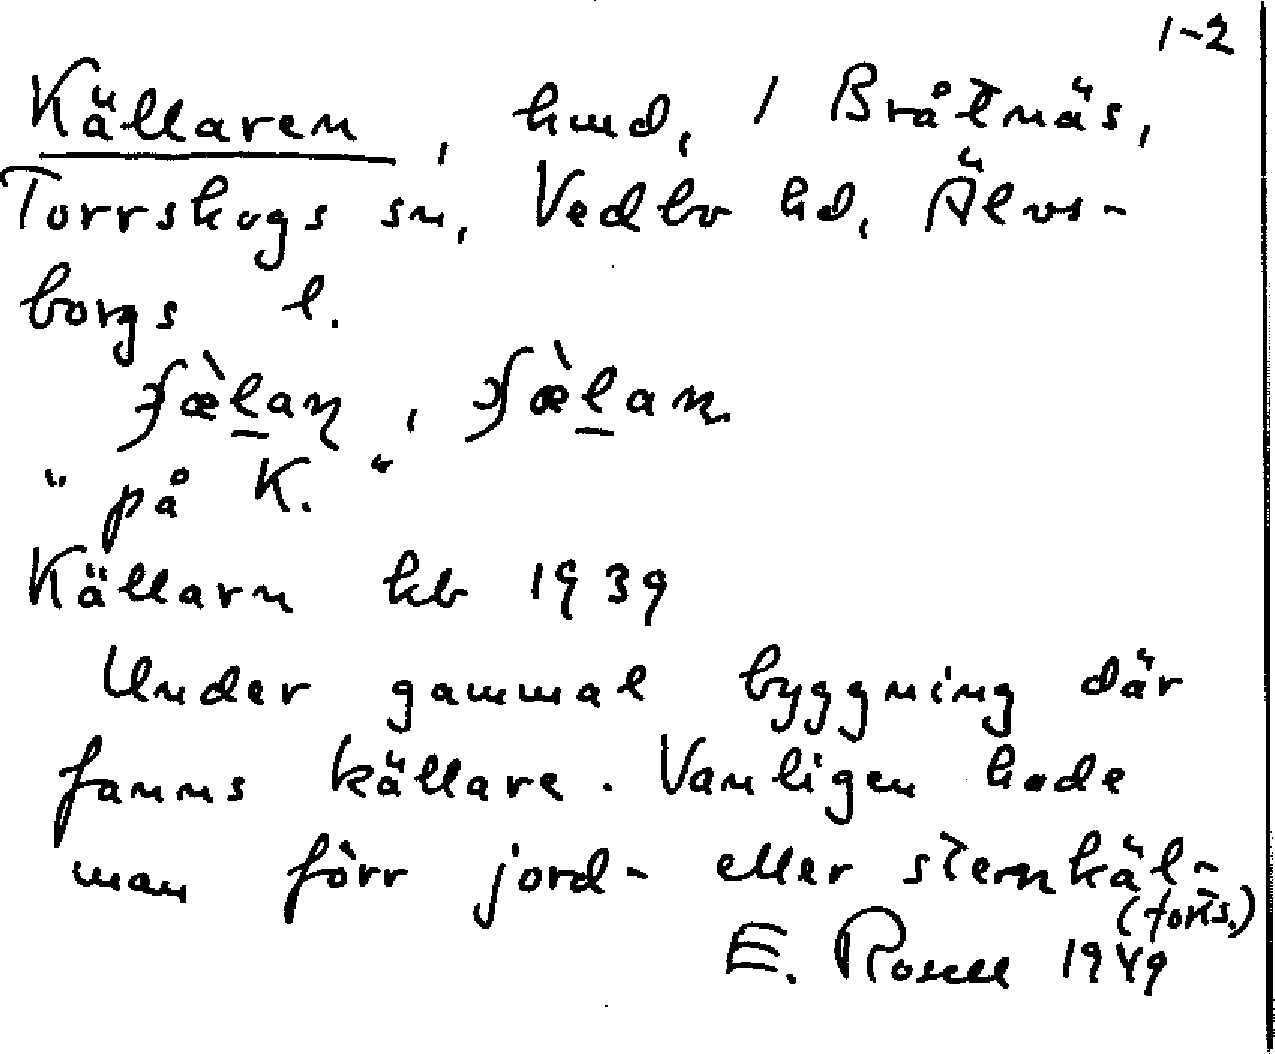 1-2
Källaren, hmd, / Bråtnäs,
Torrskogs sn, Vedbo hd, Älvs-
borgs l.
"på K."
Källarn kb 1939
Under gammal byggning där
fanns källare. Vanligen hade
man förr jord- eller stenkäl-
(forts.)
E. Rosell 1949